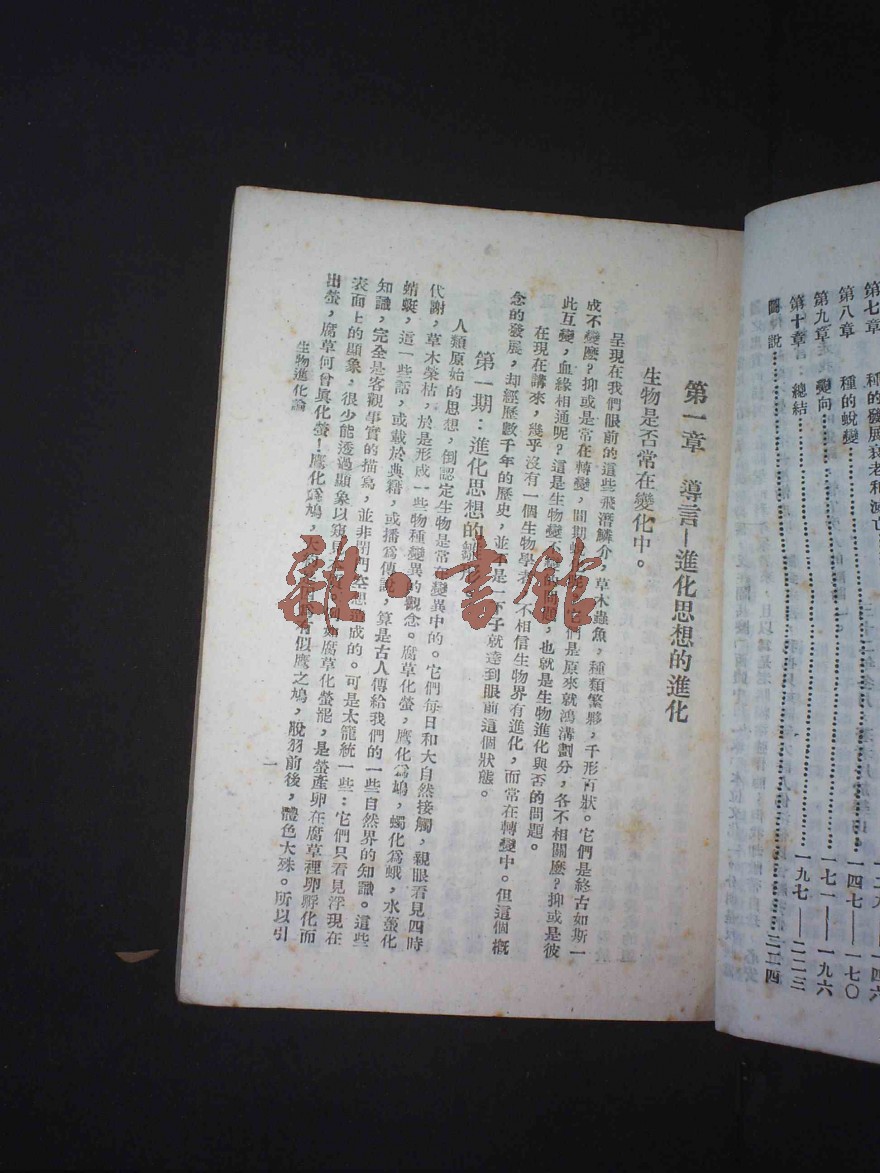 第七章 種的發展衰老和滅亡
第八章 種的蛻變……一四七——一七〇
第九章 變向……一七一——一九六
第十章 總結……一九七——二二三
圖說……二二四
第一章 導言—進化思想的進化
生物是否常在變化中。
呈現在我們眼前的這些飛潛鱗介，草木蟲魚，種類繁夥，千形百狀。它們是終古如斯一
成不變麼？抑或是常在轉變，間期 它們是原來就鴻溝劃分，各不相關麼？抑或是彼
此互變，血緣相通呢？這是生物變不變的問題，也就是生物進化與否的問題。
在現在講來，幾乎沒有一個生物學者，不相信生物界有進化，而常在轉變中。但這個概
念的發展，却經歷數千年的歷史，並不是一下子就達到眼前這個狀態。
第一期：進化思想的
人類原始的思想，倒認定生物是常在變異中的。它們每日和大自然接觸，親眼看見四時
代謝，草木榮枯，於是形成一些物種變異的觀念。腐草化螢，鷹化爲鳩，蠋化爲蛾，水蠆化
蜻蜓，這一些話，或載於典籍，或播爲傳說，算是古人傳給我們的一些自然界的知識。這些
知識，完全是客觀事實的描寫，並非閉門空想造成的。可是太籠統一些：它們只看見浮現在
表面上的顯象，很少能透過顯象以窺見 如腐草化螢罷，是螢產卵在腐草裡卵孵化而
出螢，腐草何曾眞化螢！鷹化爲鳩， 有似鷹之鳩，脫羽前後，體色大殊。所以引
生物進化論
一
雜·書館